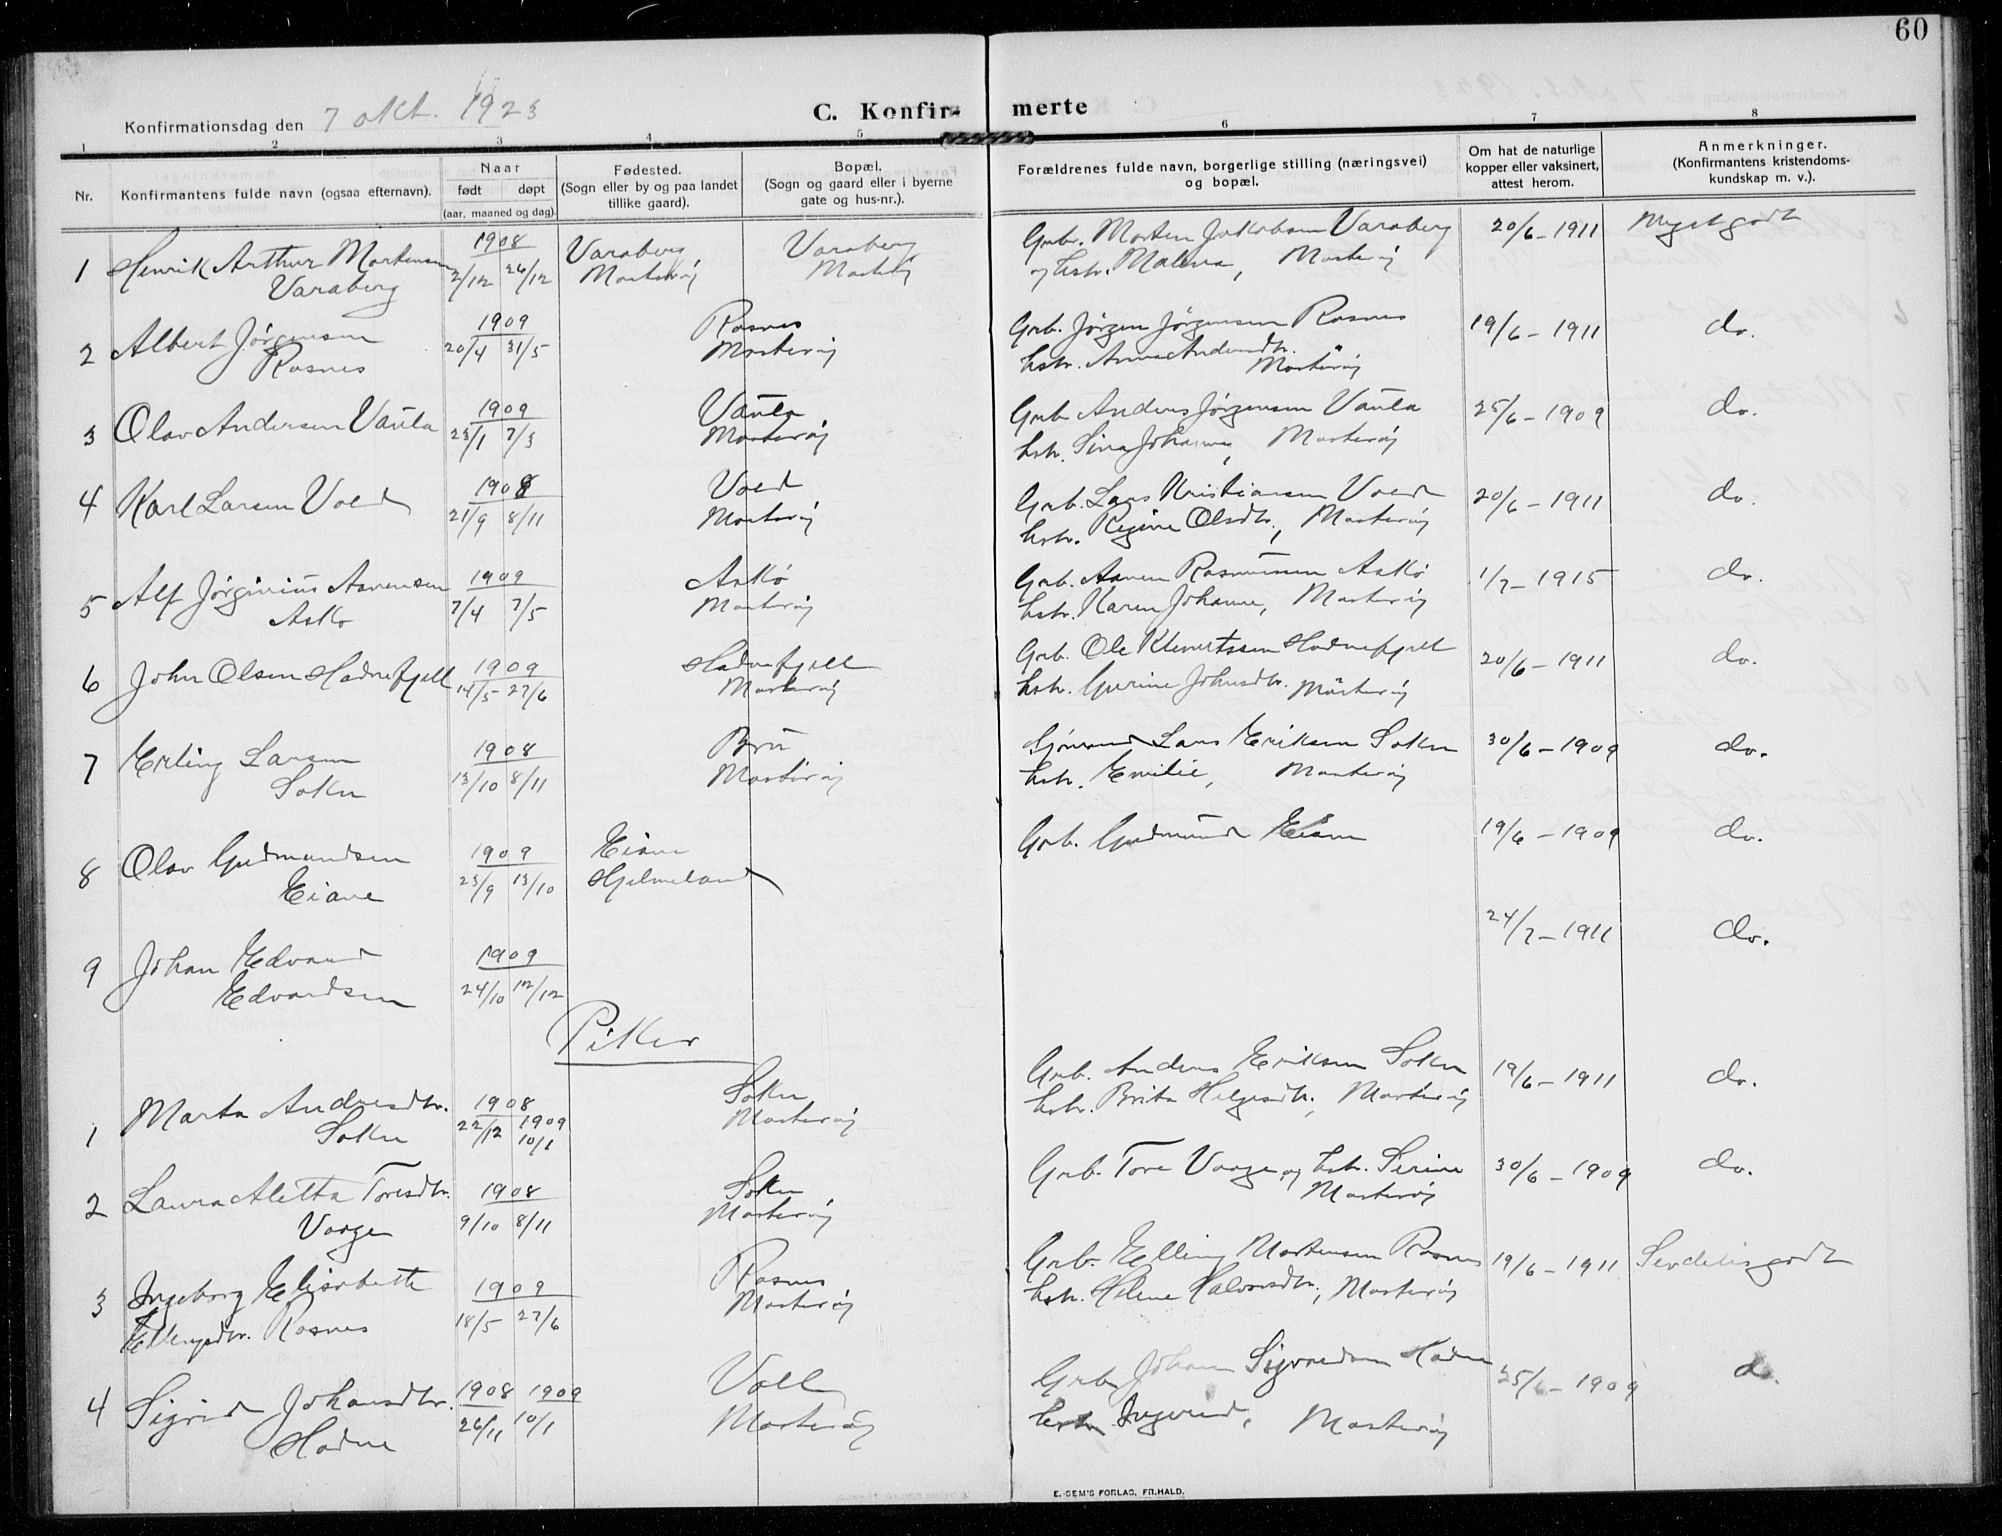 60
Konfirmationsdag den 7 okt. 1923
C. Konfirmerte
1 2 3 4 5 6 7 8
Nr.
Konfirmantens fulde navn (ogsaa efternavn).
Naar
født døpt
(aar, maaned og dag).
Fødested.
(Sogn eller by og paa landet
tillike gaard).
Bopæl.
(Sogn og gaard eller i byerne
gate og hus-nr.).
Forældrenes fulde navn, borgerlige stilling (næringsvei)
og bopæl.
Om hat de naturlige
kopper eller vaksinert,
attest herom.
Anmerkninger.
(Konfirmantens kristendoms-
kundskap m. v.).
1 Henrik Arthur Mortensen
Varaberg
1908
2/12 26/12
Varaberg
Mosterøy
Varaberg
Mosterøy
Grbr. Morten Jakobsen Varaberg
og hstr. Malena, Mosterøy
20/6 - 1911
Meget godt
2 Albert Jørgensen
Rosnes
1909
20/4 31/5
Rosnes
Mosterøy
Grb. Jørgen Jørgensen Rosnes
hstr. Anna Andersdtr.
Mosterøy
19/6 - 1911
do.
3 Olav Andersen Vaula
1909
23/1 7/3
Vaula
Mosterøy
Grb. Anders Jørgensen Vaula
hstr. Sina Johanne, Mosterøy
25/6 - 1909
do.
4 Karl Larsen Vold
1908
21/9 8/11
Vold
Mosterøy
Grb. Lars Kristiansen Vold
hstr. Regine Olsdtr., Mosterøy
20/6 - 1911
do.
5 Alf Jørginius Aanensen
Askø
1909
7/4 7/5
Askø
Mosterøy
Grb. Aanen Rasmussen Askø
hstr. Karen Johanne, Mosterøy
1/7 - 1915
do.
6 John Olsen Hadnefjell
1909
14/5 27/6
Hadnefjell
Mosterøy
Grb. Ole Klemetssen Hodnefjell
hstr. Gurine Johnsdtr. Mosterøy
20/6 - 1911
do.
7 Erling Larsen
Sokn
1908
13/10 8/11
Bru
Mosterøy
Lars Eriksen Sokn
hstr. Emilie, Mosterøy
30/6 - 1909
do.
8 Olav Gudmundsen
Eiane
1909
23/9 13/10
Eiane
Hjelmeland
Grb. Gudmund Eiane
19/6 - 1909
do.
9 Johan Edvard
Edvardsen
1909
24/10 12/12
24/7 - 1911
do.
Piker
1 Marta Andersdtr.
Sokn
1908
22/12 1909
10/1
Sokn
Mosterøy
Grb. Anders Eriksen Sokn
hstr. Brita Helgesdtr., Mosterøy
19/6 - 1911
do.
2 Laura Aletta Toresdtr.
Vaage
1908
9/10 8/11
Sokn
Mosterøy
Grb. Tore Vaage og hstr. Serine
Mosterøy
30/6 - 1909
do.
3 Ingeborg Elisabeth
Ellingsdtr. Rosnes
1909
18/5 27/6
Rosnes
Mosterøy
Grb. Elling Mortensen Rosnes
hstr. Helene Halvorsdtr., Mosterøy
19/6 - 1911
Serdelis godt
4 Sigrid Johansdtr.
Hodne
1908 1909
26/11 10/1
Voll
Mosterøy
Grb. Johan Sigvardsen Hodne
hstr. Ingerid, Mosterøy
25/6 - 1909
do.
E. SEM'S FORLAG, FR.HALD.